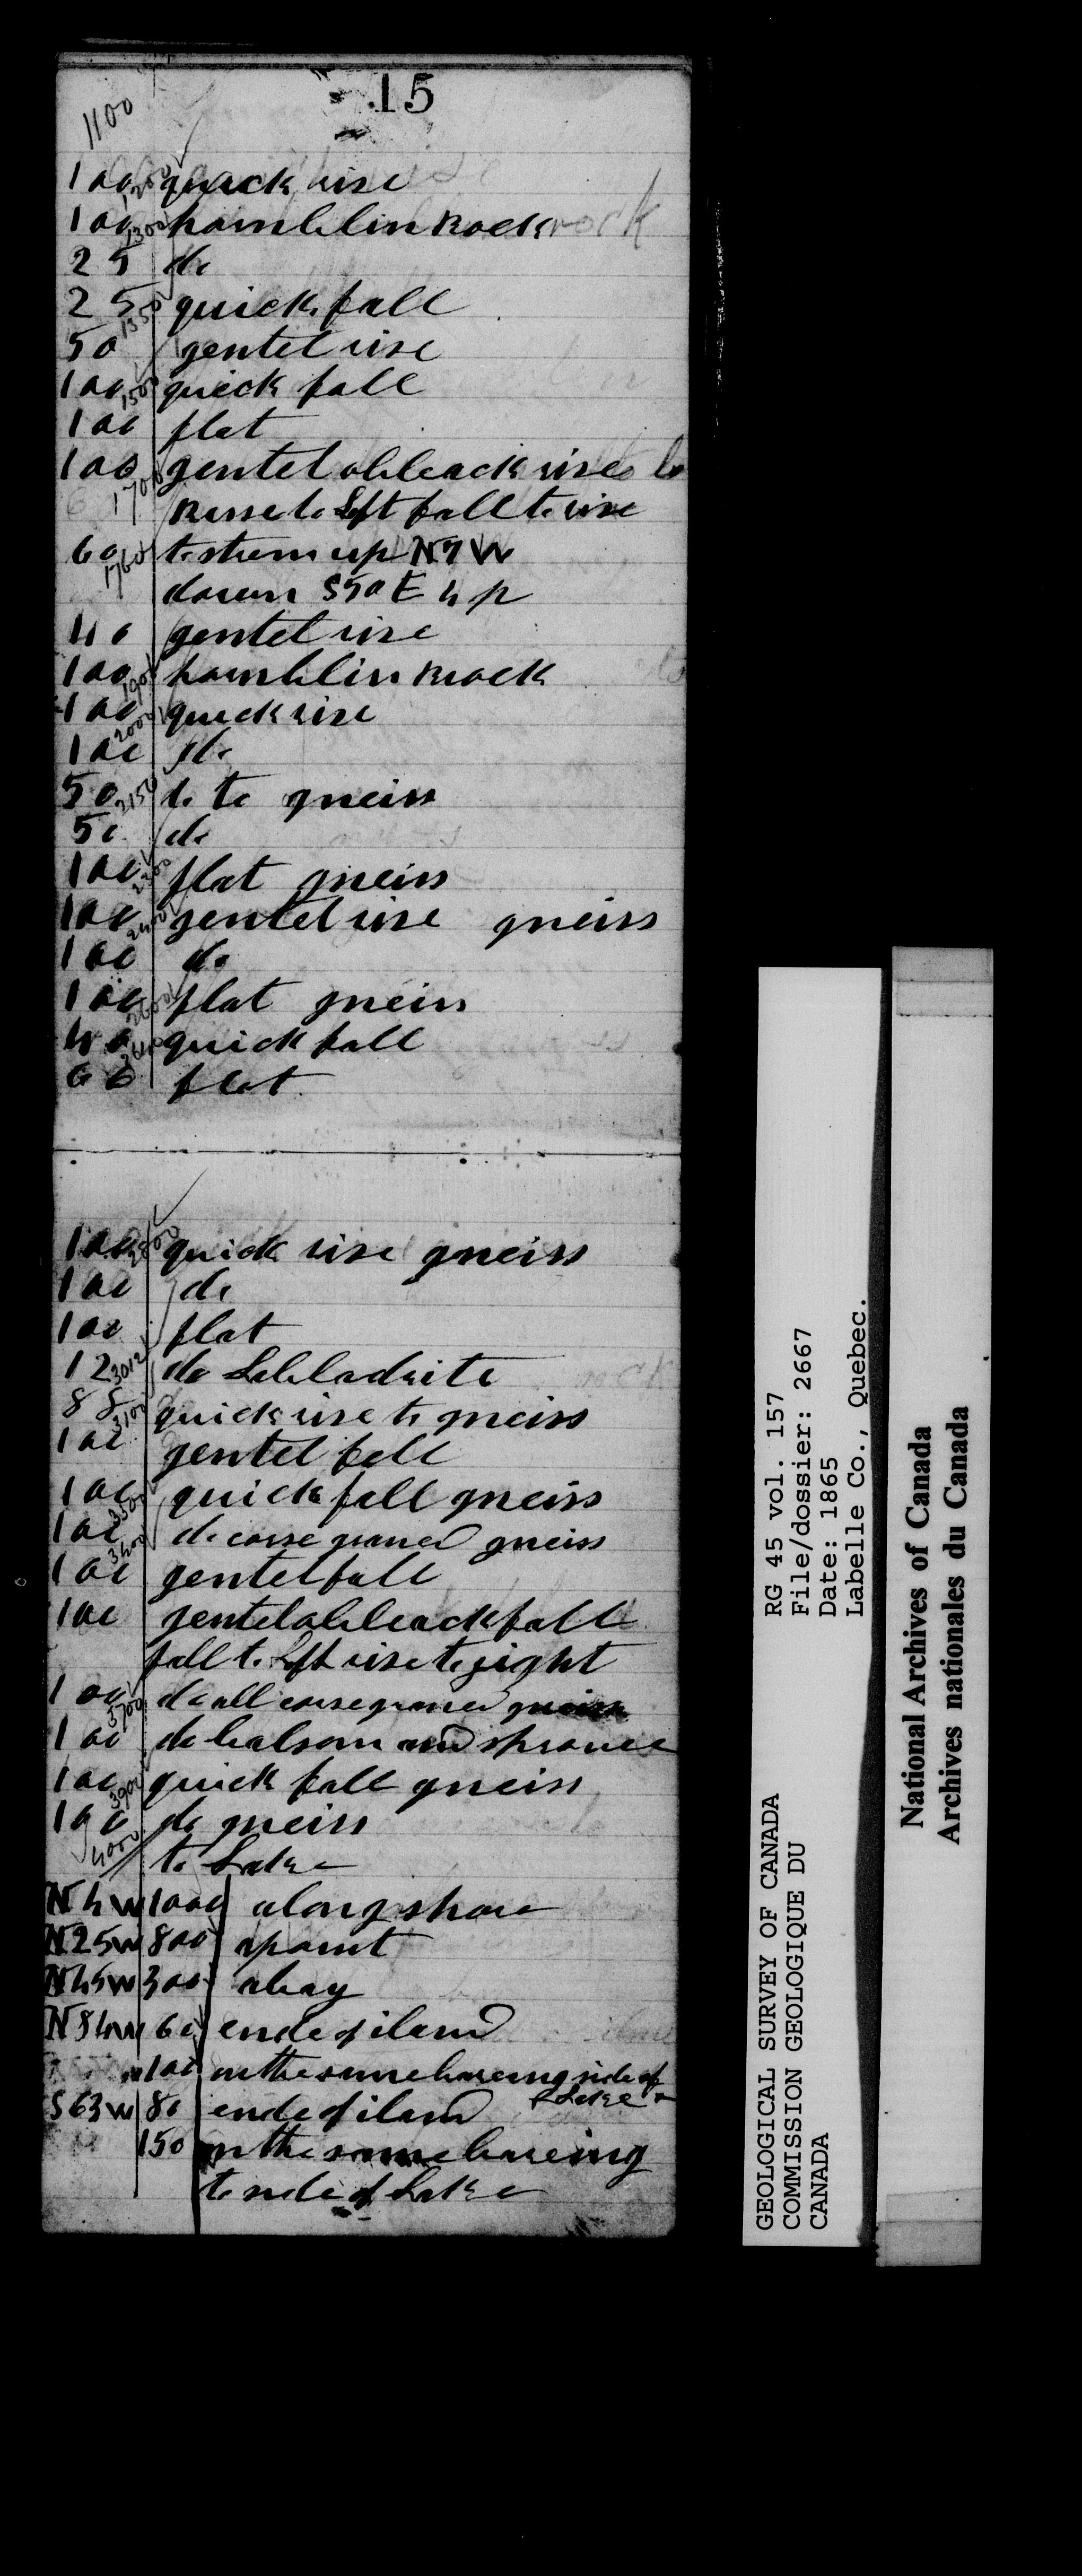 15
1100
100 1200 quick rise
100 1300 hornblin Rock rock
25 do
25 1350 quick fall
50 gentel rise
100 1500 quick fall
100 flat
100 gentel obleack rise to
1700 Rise to Left fall to rise
60 1760 to strem up N7W
down S50E 4 p
40 gentel rise
100 1900 hornblin Rock
100 2000 quick rise
100 do
50 2150 do to gneiss
50 do
100 2300 flat gneiss
100 2400 gentel rise gneiss
100 do
100 2600 flat gneiss
40 2640 quick fall
60 flat
100 2800 quick rise gneiss
100 do
100 flat
12 3012 do Labladrite
88 3100 quick rise to gneiss
100 gentel fall
100 3300 quick fall gneiss
100 3400 do corse graned gneiss
100 gentel fall
100 gentel obleack fall
fall to Left rise to right
100 3700 do all corse graned gneiss
100 do balsom and sprouce
100 3900 quick fall gneiss
100 4000 do gneiss
to Lake
N4W 1000 along shore
N25W 800 apoint
N45W 300 abay
N84W 60 ende of iland
100 on the same bareing side of Lake
S63W 80 ende of iland
150 on the same bareing
to side of Lake
GEOLOGICAL SURVEY OF CANADA RG 45 vol. 157
COMMISSION GEOLOGIQUE DU File/dossier: 2667
CANADA Date: 1865
Labelle Co., Quebec.
National Archives of Canada
Archives nationales du Canada